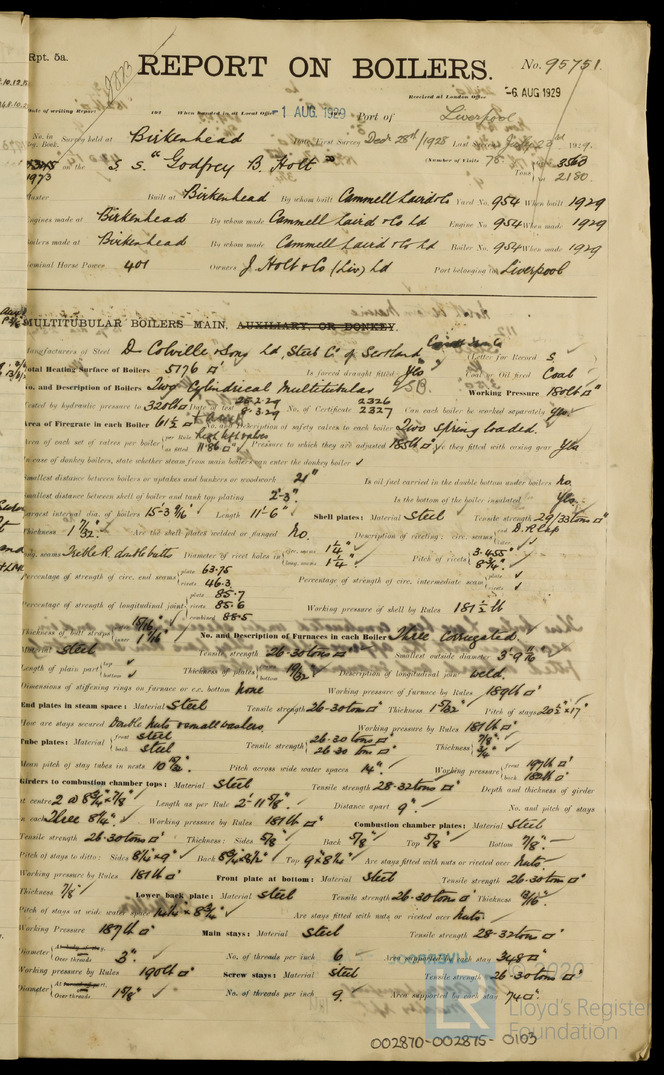 Rpt. 5a.
REPORT ON BOILERS.
No. 95751.
Received at London Office -6 AUG 1929
Date of writing Report 192 When handed in at Local Office 1 AUG 1929 Port of Liverpool
No. in Reg. Book. Survey held at Birkenhead Date, First Survey Dec 28th/1928 Last Survey 1929
on the S S. "Godfrey B. Holt" (Number of Visits 78 Gross 3560 Tons Net 2180
Master Built at Birkenhead By whom built Cammell Laird & Co Yard No. 954 When built 1929
Engines made at Birkenhead By whom made Cammell Laird & Co Ld Engine No. 954 When made 1929
Boilers made at Birkenhead By whom made Cammell Laird & Co Ld Boiler No. 954 When made 1929
Nominal Horse Power 401 Owners J. Holt & Co (Liv) Ld Port belonging to Liverpool
MULTITUBULAR BOILERS MAIN, AUXILIARY, OR DONKEY.
Manufacturers of Steel D. Colville & Sons Ld, Steel Co of Scotland (Letter for Record S
Total Heating Surface of Boilers 5176 □' Is forced draught fitted Yes Coal or Oil fired Coal
No. and Description of Boilers Two Cylindrical Multitubular S.B. Working Pressure 180 lb □"
Tested by hydraulic pressure to 320 lb □" Date of test 26-2-29 9-3-29 No. of Certificate 2326 2327 Can each boiler be worked separately Yes
Area of Firegrate in each Boiler 61½ □' No. and Description of safety valves to each boiler Two spring loaded.
Area of each set of valves per boiler per Rule as fitted 11.86 □" Pressure to which they are adjusted 185 lb □" Are they fitted with easing gear Yes
In case of donkey boilers, state whether steam from main boilers can enter the donkey boiler ✓
Smallest distance between boilers or uptakes and bunkers or woodwork 21" Is oil fuel carried in the double bottom under boilers No.
Smallest distance between shell of boiler and tank top plating 2'-3" Is the bottom of the boiler insulated Yes.
Largest internal dia. of boilers 15'-3 9/16" Length 11'-6" Shell plates: Material Steel Tensile strength 29/33 tons □"
Thickness 1 7/32" Are the shell plates welded or flanged No. Description of riveting: circ. seams end D.R. lap
long. seams Treble R. double butts Diameter of rivet holes in circ. seams 1¼" long. seams 1¼" Pitch of rivets 3.455" 8¾"
Percentage of strength of circ. end seams plate 63.75 rivets 46.3 Percentage of strength of circ. intermediate seam plate rivets
Percentage of strength of longitudinal joint plate 85.7 rivets 85.6 combined 88.5 Working pressure of shell by Rules 181½ lb
Thickness of butt straps outer inner 1 1/16" No. and Description of Furnaces in each Boiler Three corrugated
Material Steel Tensile strength 26-30 tons □" Smallest outside diameter 3'-9 9/16"
Length of plain part top bottom Thickness of plates bottom 19/32" Description of longitudinal joint weld.
Dimensions of stiffening rings on furnace or c.c. bottom None Working pressure of furnace by Rules 189 lb □"
End plates in steam space: Material Steel Tensile strength 26-30 tons □" Thickness 1 5/32" Pitch of stays 20½" x 17"
How are stays secured Double nuts & small washers Working pressure by Rules 181 lb □"
Tube plates: Material front Steel back Steel Tensile strength 26-30 tons 26-30 tons □" Thickness 7/8" ¾"
Mean pitch of stay tubes in nests Pitch across wide water spaces 14" Working pressure front 197 lb □" back 182 lb □"
Girders to combustion chamber tops: Material Steel Tensile strength 28-32 tons □" Depth and thickness of girder
at centre 2 @ 8¾" x 7/8" Length as per Rule 2'-11 5/8" Distance apart 9" No. and pitch of stays
in each Three 8¼" Working pressure by Rules 181 lb □" Combustion chamber plates: Material Steel
Tensile strength 26-30 tons □" Thickness: Sides 5/8" Back 5/8" Top 5/8" Bottom 7/8"
Pitch of stays to ditto: Sides 8¼" x 9" Back Top 9" x 8¼" Are stays fitted with nuts or riveted over Nuts
Working pressure by Rules 181 lb □" Front plate at bottom: Material Steel Tensile strength 26-30 tons □"
Thickness 7/8" Lower back plate: Material Steel Tensile strength 26-30 tons □" Thickness 13/16"
Pitch of stays at wide water space x 8¾" Are stays fitted with nuts or riveted over Nuts
Working Pressure 187 lb □" Main stays: Material Steel Tensile strength 28-32 tons □"
Diameter At body of stay, Over threads 3" No. of threads per inch 6 Area supported by each stay 348 □"
Working pressure by Rules 190 lb □" Screw stays: Material Steel Tensile strength 26-30 tons □"
Diameter At turned off part, Over threads 1 5/8" No. of threads per inch 9. Area supported by each stay 74 □"
LR Lloyd's Register Foundation
002870-002875-0163